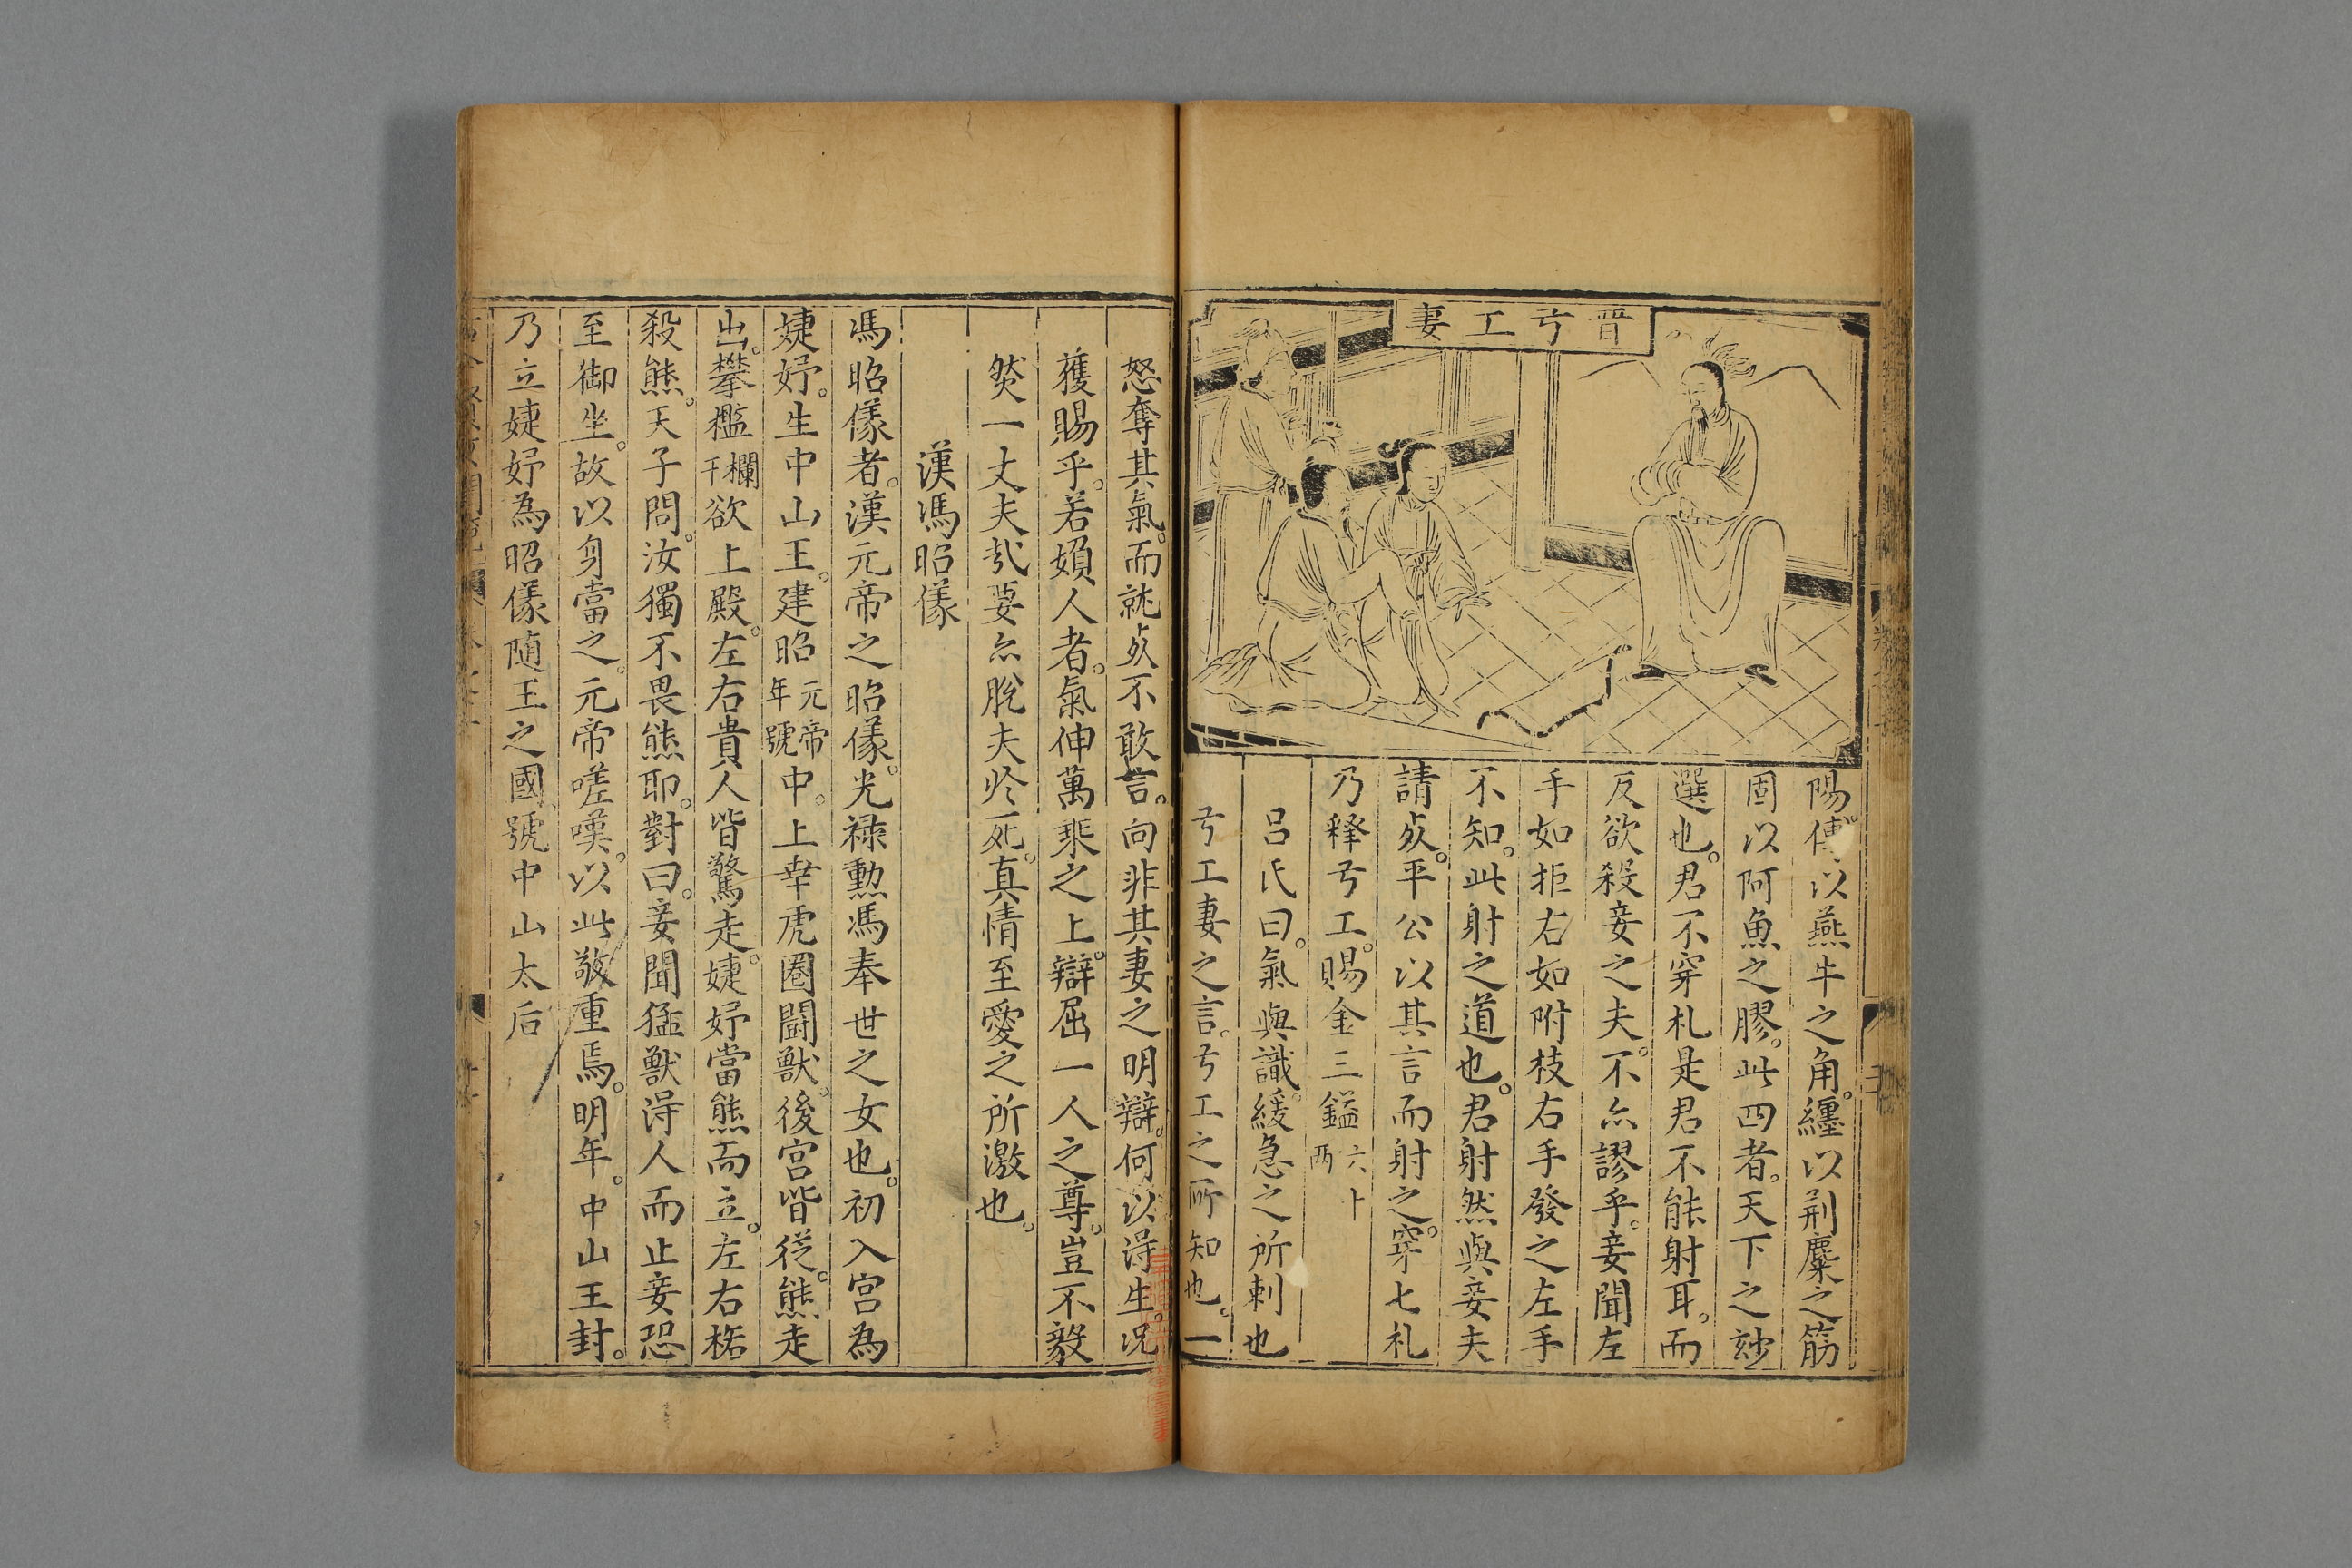 晋弓工妻
陽傅以燕牛之角。纏以荆麋之筋
固以阿魚之膠。此四者。天下之玅
選也。君不穿札是君不能射耳。而
反欲殺妾之夫。不亦謬乎。妾聞左
手如拒右如附枝右手發之左手
不知。此射之道也。君射然與妾夫
請矢。平公以其言而射之。穿七札
乃釋弓工。賜金三鎰六十両
呂氏曰。氣與識緩急之所刺也
弓工妻之言。弓工之所知也。一
怒奪其氣。而就矢不敢言。向非其妻之明辯。何以淂生。况
獲賜乎。若嬪人者。氣伸萬乘之上。辯屈一人之尊。豈不毅
然一丈夫㢤要亦脫夫扵死。真情至愛之所激也。
漢馮昭儀
馮昭儀者。漢元帝之昭儀。光禄勲馮奉世之女也。初入宫為
婕妤。生中山王。建昭元帝年號中。上幸虎圏鬬獣。後宮皆従。熊走
出。攀檻欄干欲上殿。左右貴人皆驚走。婕妤當熊而立。左右格
殺熊。天子問。汝獨不畏熊耶。對曰。妾聞猛獣淂人而止妾恐
至御坐。故以身當之。元帝嗟嘆。以此敬重焉。明年。中山王封。
乃立婕妤為昭儀随王之國號中山太后